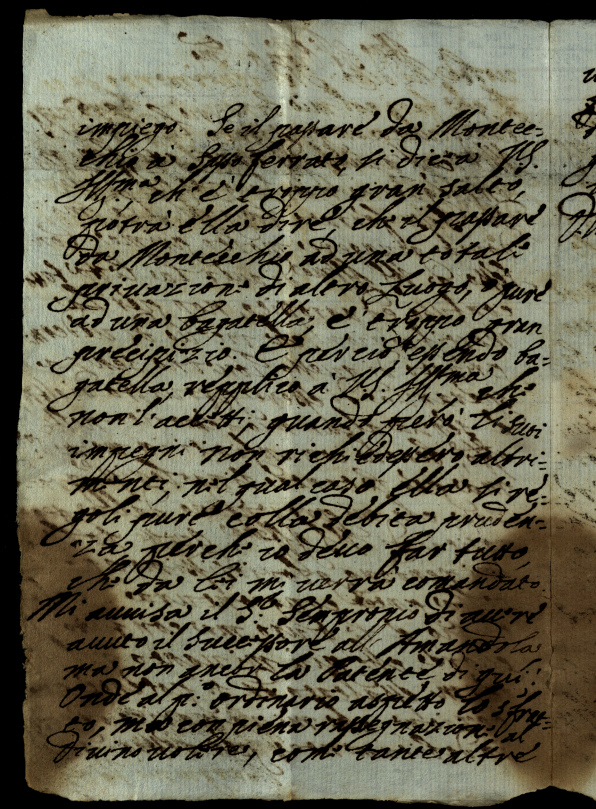 impiego. Se il passare da Montec-
chio a Sassoferrato, si dirà VS.
Ill.ma, ch'è troppo gran salto,
potrà ella dire, che il passare
da Montecchio ad una total
privazione di altro Luogo, o pure
ad una bagatella, è troppo gran
precipizio. E perciò essendo ba-
gatella, replico à VS. Ill.ma che
non l'accetti, quando però li suoi
impegni non richiedessero altri-
menti, nel qual caso ella si re-
goli pure colla debita pruden-
za perche io devo far tutto,
che da lei mi verrà comandato.
Mi avvisa il S.r Sempronio di avere
avuto il Successore all'Amandola
ma non la Patente di qui.
Onde al p.o ordinario aspetto lo sfrat-
to, ma con piena rassegnazione al
divino volere, come tante altre